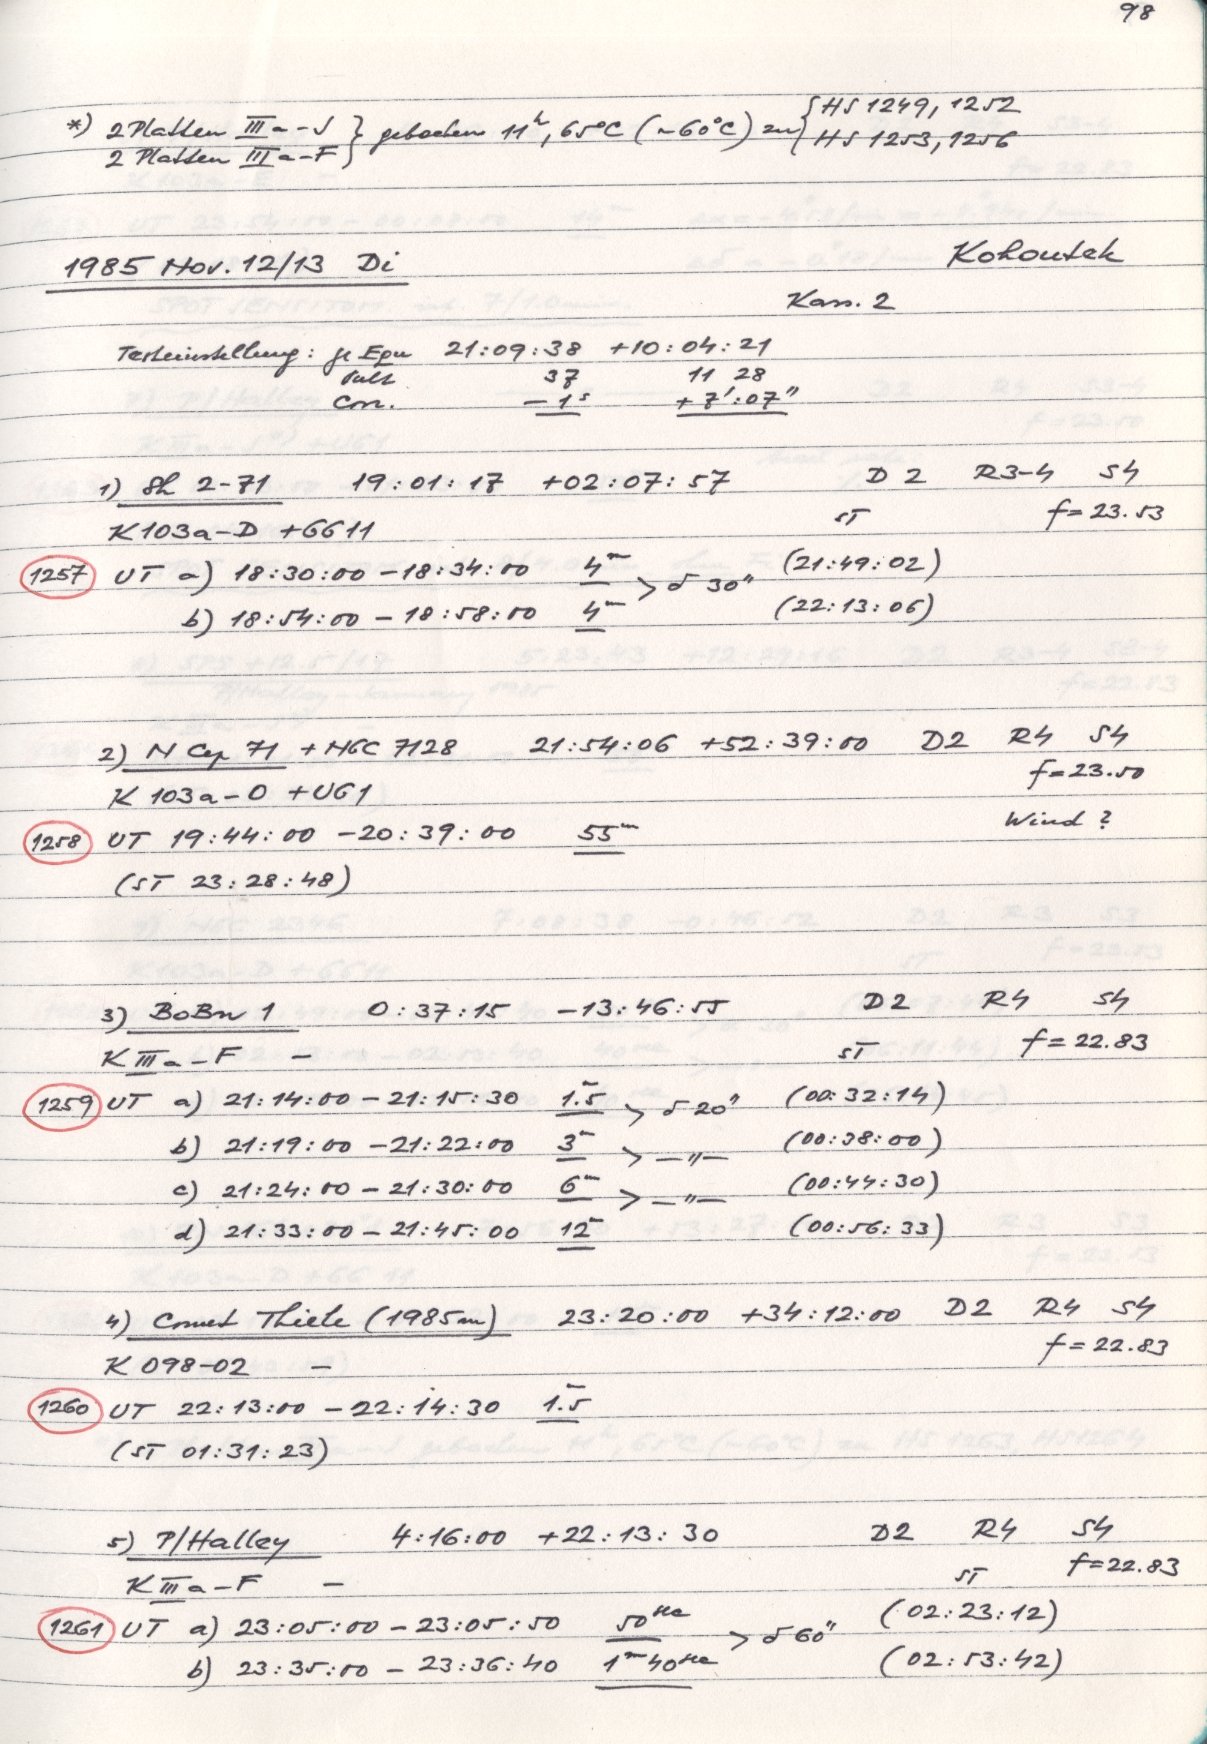 98
*) 2 Platten IIIa-J } gebacken 11h, 65°C (~60°C) zu { HS 1249, 1252
2 Platten IIIa-F } { HS 1253, 1256
1985 Nov. 12/13 Di Kohoutek
Kass. 2
Testeinstellung: gr Equ 21:09:38 +10:04:21
Pult 37 11 28
Corr. -1s +7':07"
1) Sh 2-71 19:01:17 +02:07:57 D2 R3-4 S4
K 103a-D +GG11 ST f=23.53
1257 UT a) 18:30:00 - 18:34:00 4m > δ 30" (21:49:02)
b) 18:54:00 - 18:58:00 4m (22:13:06)
2) N Cep 71 + NGC 7128 21:54:06 +52:39:00 D2 R4 S4
K 103a-O +UG1 f=23.50
1258 UT 19:44:00 - 20:39:00 55m Wind?
(ST 23:28:48)
3) BoBn 1 0:37:15 -13:46:55 D2 R4 S4
K IIIa-F - ST f=22.83
1259 UT a) 21:14:00 - 21:15:30 1.5m > δ 20" (00:32:14)
b) 21:19:00 - 21:22:00 3m > -"- (00:38:00)
c) 21:24:00 - 21:30:00 6m > -"- (00:44:30)
d) 21:33:00 - 21:45:00 12m (00:56:33)
4) Comet Thiele (1985m) 23:20:00 +34:12:00 D2 R4 S4
K 098-02 - f=22.83
1260 UT 22:13:00 - 22:14:30 1.5m
(ST 01:31:23)
5) P/Halley 4:16:00 +22:13:30 D2 R4 S4
K IIIa-F - ST f=22.83
1261 UT a) 23:05:00 - 23:05:50 50sec > δ 60" (02:23:12)
b) 23:35:00 - 23:36:40 1m40sec (02:53:42)